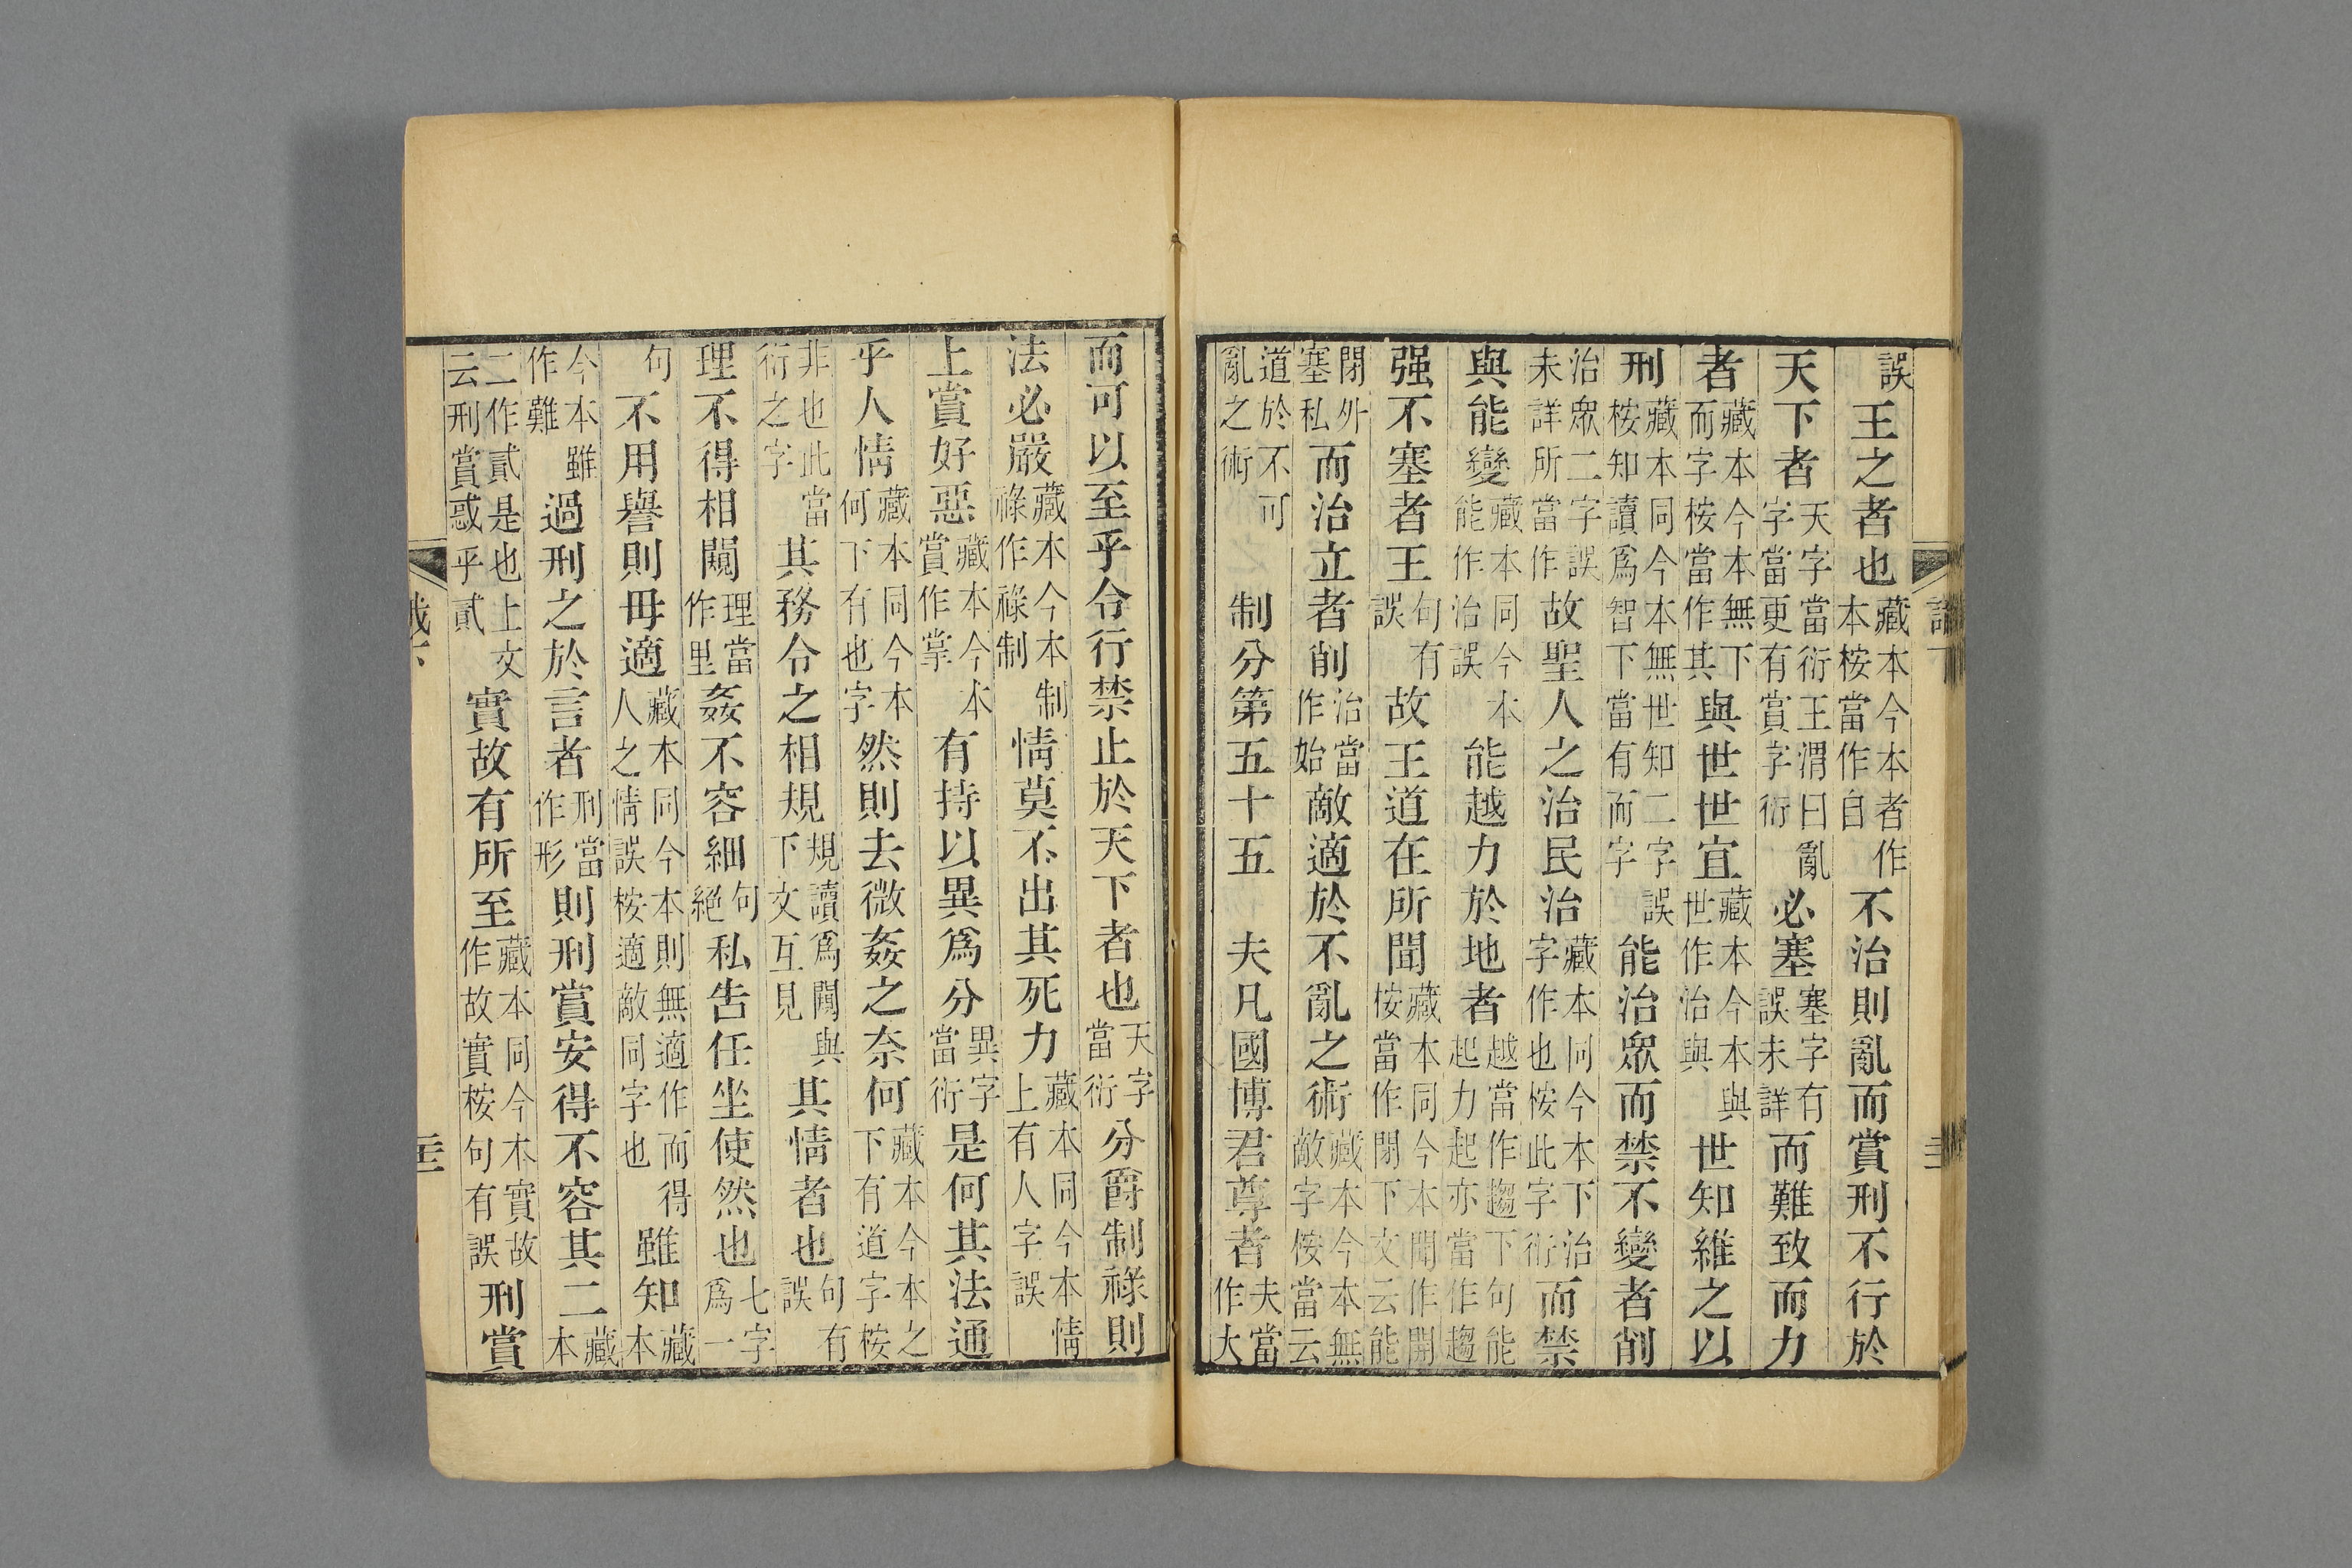 誤王之者也藏本今本者作本桉當作自不治則亂而賞刑不行於
天下者天字當衍王渭曰亂字當更有賞字衍必塞塞字有誤未詳而難致而力
者藏本今本無下而字桉當作其與世世宜藏本今本與世作治與世知維之以
刑藏本同今本無世知二字誤桉知讀爲智下當有而字能治眾而禁不變者削
治眾二字誤未詳所當作故聖人之治民治藏本同今本下治字作也桉此字衍而禁
與能變藏本同今本能作治誤能越力於地者越當作趨下句能起力起亦當作趨
强不塞者王句有誤故王道在所聞藏本同今本聞作開桉當作閉下文云能
閉外塞私而治立者削治當作始敵適於不亂之術藏本今本無敵字桉當云
道於不可亂之術制分第五十五夫凡國博君尊者夫當作大
而可以至乎令行禁止於天下者也天字當衍分爵制祿則
法必嚴藏本今本制祿作祿制情莫不出其死力藏本同今本情上有人字誤
上賞好惡藏本今本賞作掌有持以異爲分異字當衍是何其法通
乎人情藏本同今本何下有也字然則去微姦之奈何藏本今本之下有道字桉
非也此當衍之字其務令之相規規讀爲闚與下文互見其情者也句有誤
理不得相闚理當作里姦不容細句絕私告任坐使然也七字爲一
句不用譽則毋適藏本同今本則無適作而得人之情誤桉適敵同字也雖知藏本
今本雖作難過刑之於言者刑當作形則刑賞安得不容其二藏本
二作貳是也上文云刑賞惑乎貳實故有所至藏本同今本實故作故實桉句有誤刑賞